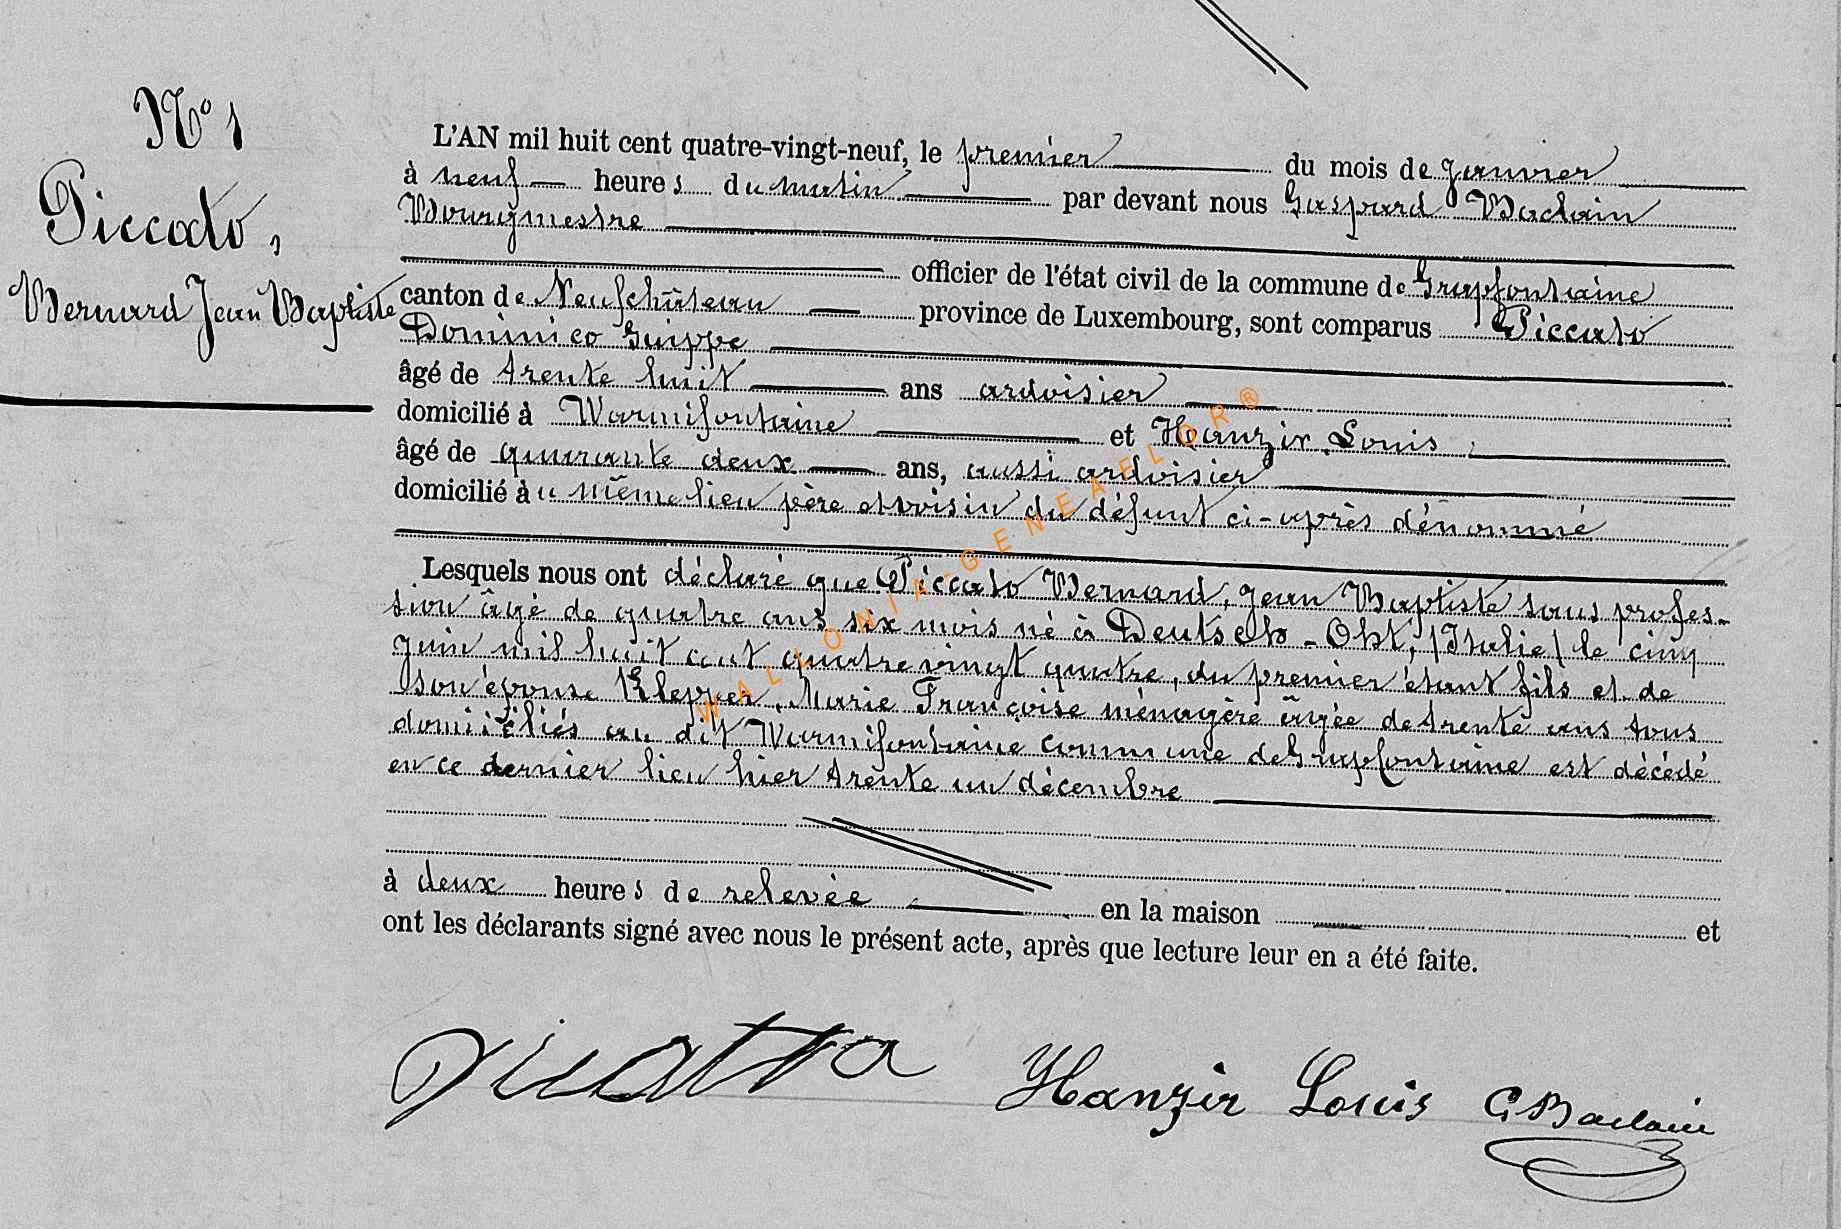 N° 1
Piccato,
Bernard Jean Baptiste
L'AN mil huit cent quatre-vingt-neuf, le premier du mois de Janvier
à neuf heures du matin par devant nous Gaspard Baclain
Bourgmestre
officier de l'état civil de la commune de Grapfontaine
canton de Neufchâteau province de Luxembourg, sont comparus Piccato
Dominico Guippe
âgé de trente huit ans ardoisier
domicilié à Warmifontaine et Hanzir Louis
âgé de quarante deux ans, aussi ardoisier
domicilié àu même lieu père et voisin du défunt ci-après dénommé
Lesquels nous ont déclaré que Piccato Bernard, Jean Baptiste sans profes-
sion âgé de quatre ans six mois né à Deutsch-Oht, (Italie) le cinq
Juin mil huit cent quatre vingt quatre, du premier étant fils et de
son épouse Klepper, Marie Françoise ménagère âgée de trente ans tous
domiciliés au dit Warmifontaine commune de Grapfontaine est décédé
en ce dernier lieu hier trente un décembre
à deux heures de relevée en la maison et
ont les déclarants signé avec nous le présent acte, après que lecture leur en a été faite.
Hanzir Louis G Baclain
WALLONIA-GENEAELOR®